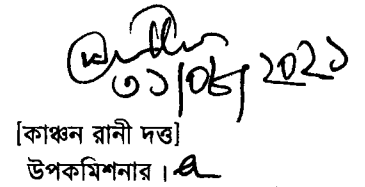 ৩১/০৮/২০২১
[কাঞ্চন রানী দত্ত]
উপকমিশনার।